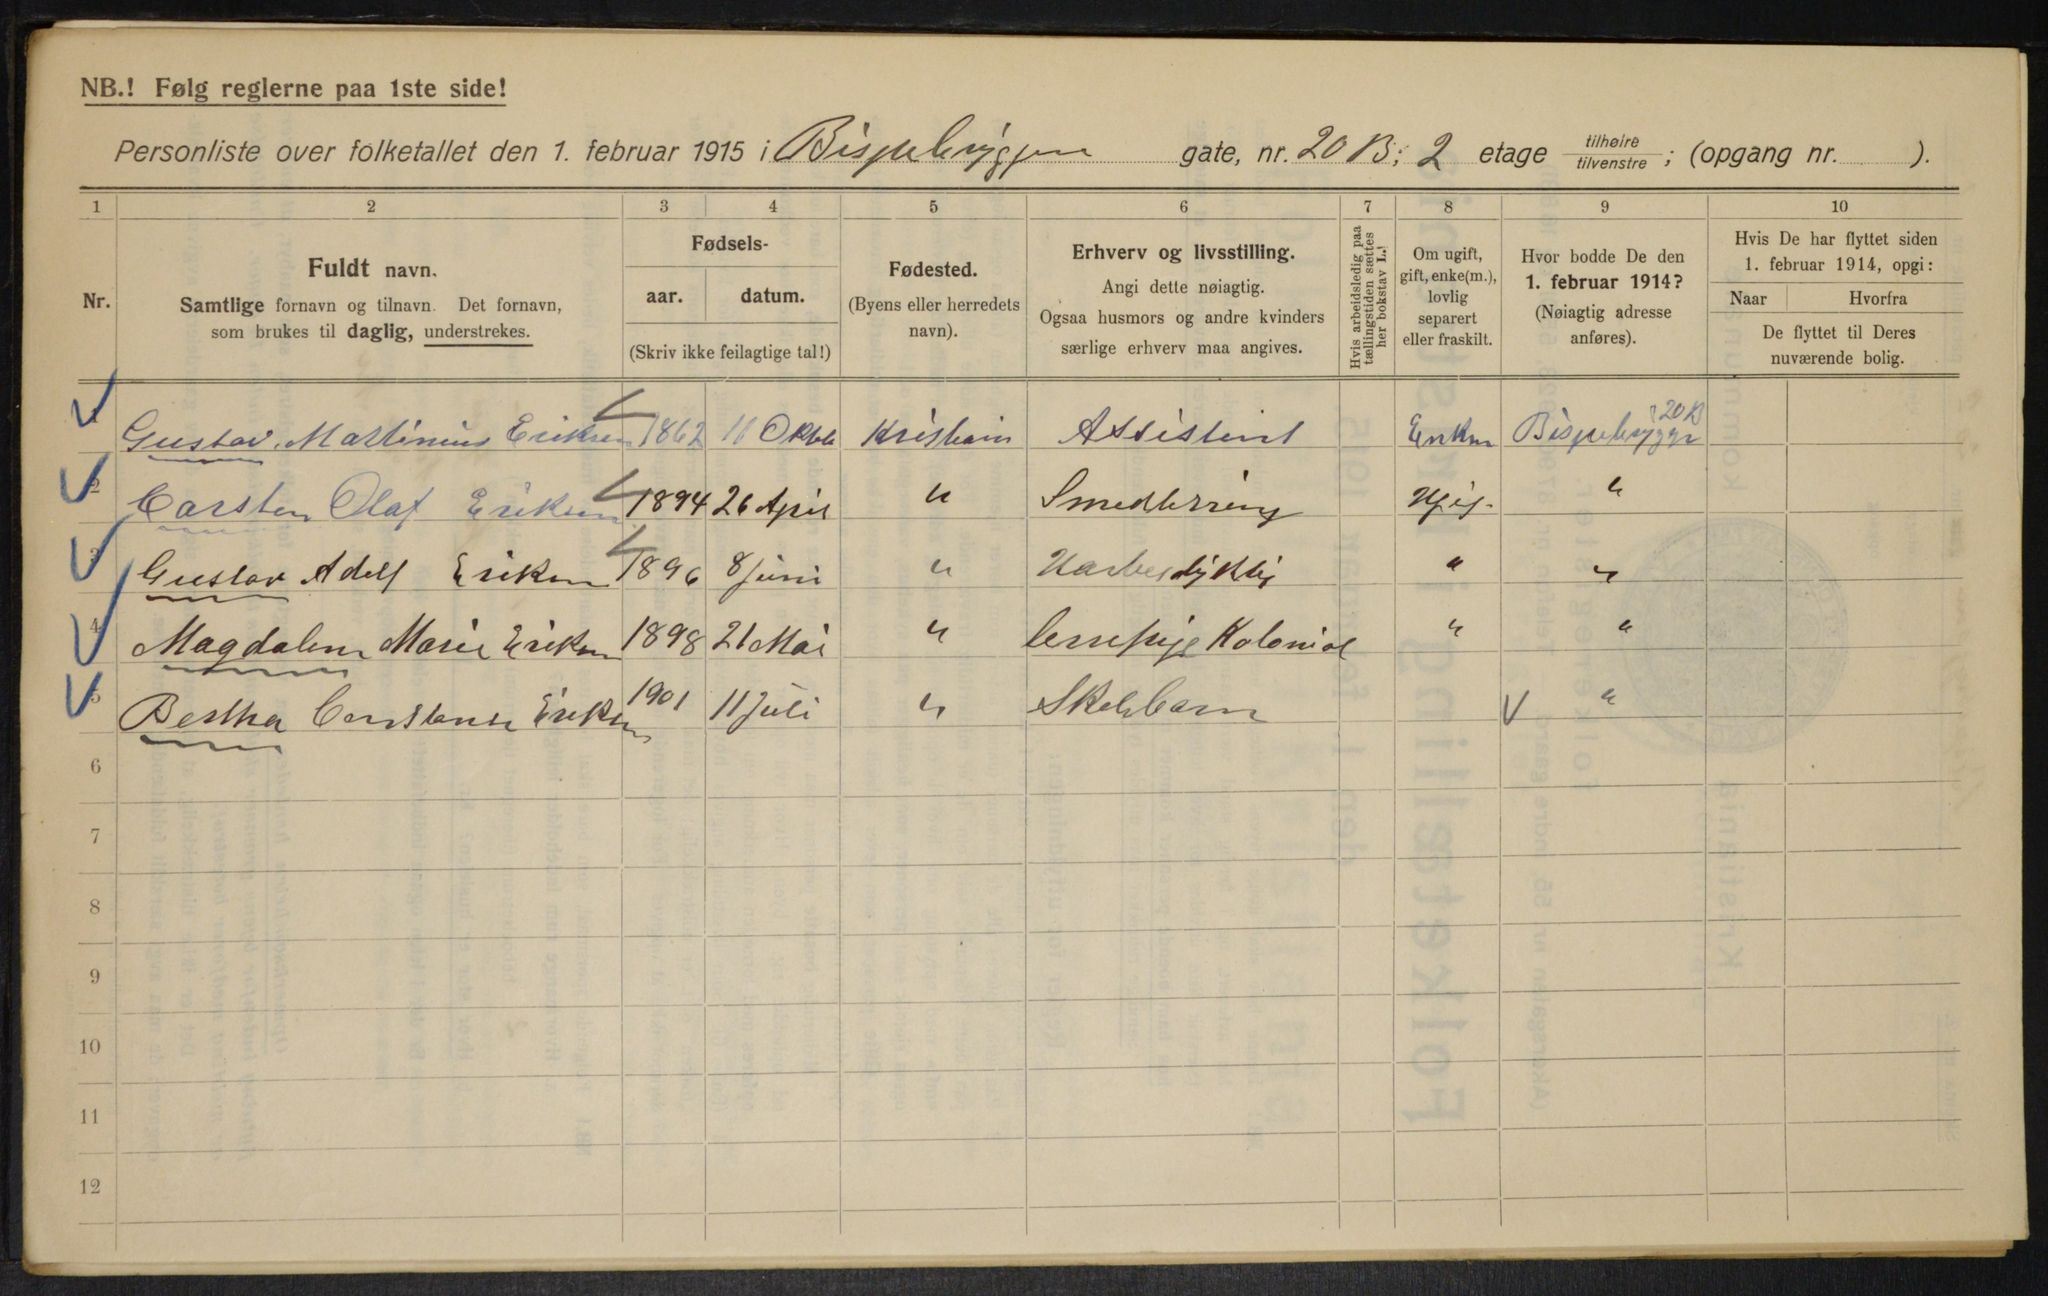 NB.! Følg reglerne paa 1ste side!
Personliste over folketallet den 1. februar 1915 i Bispebryggen gate, nr. 20 B; 2 etage tilhøire/tilvenstre; (opgang nr. ).
1 2 3 4 5 6 7 8 9 10
Nr.
Fuldt navn.
Samtlige fornavn og tilnavn. Det fornavn,
som brukes til daglig, understrekes.
Fødsels-
aar. datum.
(Skriv ikke feilagtige tal!)
Fødested.
(Byens eller herredets
navn).
Erhverv og livsstilling.
Angi dette nøiagtig.
Ogsaa husmors og andre kvinders
særlige erhverv maa angives.
Hvis arbeidsledig paa
tællingstiden sættes
her bokstav L.!
Om ugift,
gift, enke(m.),
lovlig
separert
eller fraskilt.
Hvor bodde De den
1. februar 1914?
(Nøiagtig adresse
anføres).
Hvis De har flyttet siden
1. februar 1914, opgi:
Naar Hvorfra
De flyttet til Deres
nuværende bolig.
1 Gustav Martinius Eriksen 1862 11 Oktb Kristiania Assistent Enkm Bispebrygge 20 B
2 Carsten Olaf Eriksen 1894 26 April " Ugif. "
3 Gustav Adolf Eriksen 1896 8 juni " " "
4 Magdalene Marie Eriksen 1898 21 Mai " Kolonial " "
5 Bertha Constanse Eriksen 1901 11 juli " Skolebarn "
6
7
8
9
10
11
12